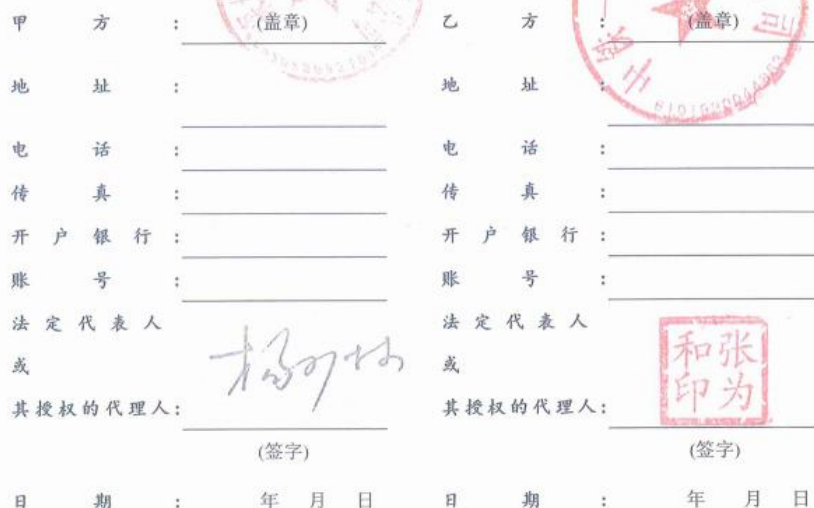 甲方: (盖章)
地址:
电话:
传真:
开户银行:
账号:
法定代表人
或
其授权的代理人:
(签字)
日期: 年 月 日
乙方: (盖章)
地址:
电话:
传真:
开户银行:
账号:
法定代表人
或
其授权的代理人:
张为
和印
(签字)
日期: 年 月 日